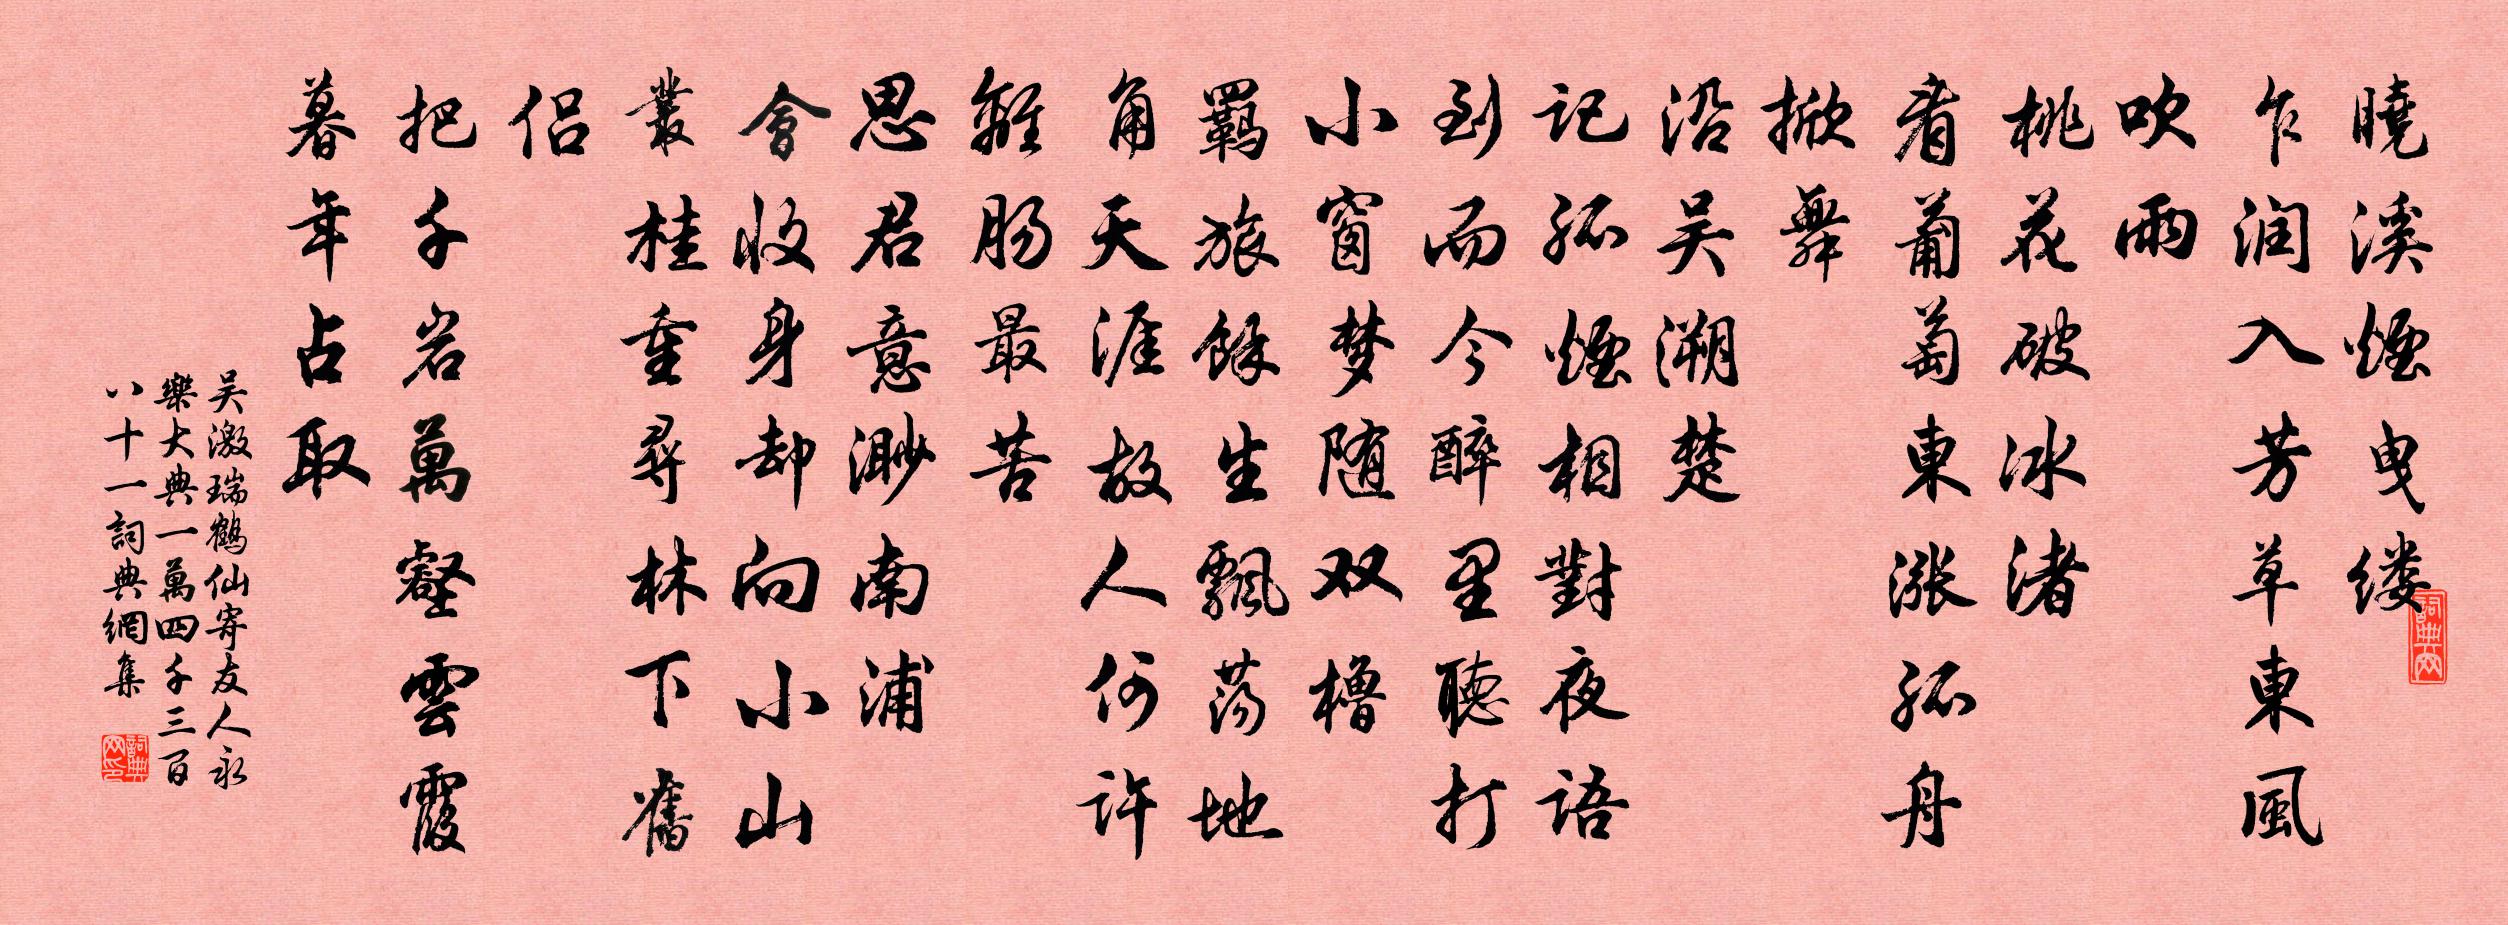 曉溪煙曳缕
乍润入芳草東風
吹雨
桃花破冰渚
看葡萄東漲孤舟
掀舞
沿吴溯楚
記孤煙相對夜語
到而今醉里聽打
小窗梦随双櫓
羈旅餘生飄荡地
角天涯故人何許
離肠最苦
思君意渺南浦
會收身却向小山
叢桂重尋林下舊
侣
把千岩萬壑雲霞
暮年占取
吴激瑞鶴仙寄友人永
樂大典一萬四千三百
八十一詞典網集
詞典网
詞典网印